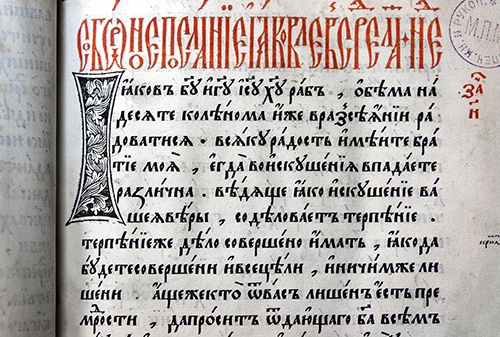 СОБОРНОЕ ПОСЛАНИЕ ІАКОВЛЕ ЕВРЕѠМ
Іꙗковъ бг҃у и гу҃ іс҃у хр҃у рабъ , обѣма на
десѧте колѣнома иже вразсѣѧнїи ра
доватисѧ . всѧку радость имѣите бра
тїе моѧ , егда воискушенїѧ впадаете
различна . вѣдѧще ꙗко искушенїе ва
шеѧ вѣры , содѣловаѣтъ терпѣнїе .
терпѣнїе же дѣло совершено имать , ꙗкода
будете совершени ивсецѣли , иничимже ли
шени . аще жекто ѿвасъ лишенъ есть пре
мрⷣости , дапроситъ ѿдающаго бг҃а всѣмъ
ЗА҃